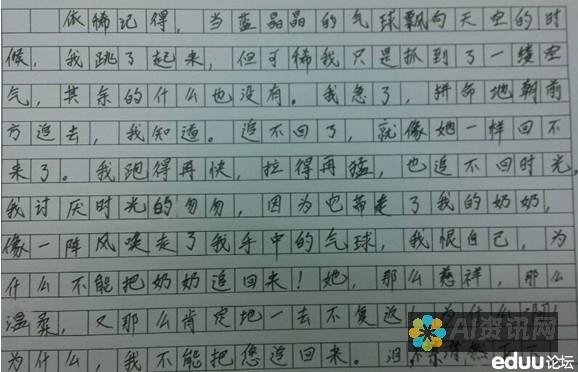 依稀记得，当蓝晶晶的气球飘向天空的时
候，我跳了起来，但可稀我只是抓到了一缕空
气，其余的什么也没有。我急了，拼命地朝前
方追去，我知道。追不回了，就像她一样回不
来了。我跑得再快，拉得再猛，也追不回时光，
我讨厌时光的匆匆，因为它带走了我的奶奶，
像一阵风吹走了我手中的气球，我恨自己，为
什么不能把奶奶追回来！她，那么慈祥，那么
温柔，又那么肯定地一去不复返！为什么
为什么，我不能把您追回来。泪
AI资讯网
eduu论坛